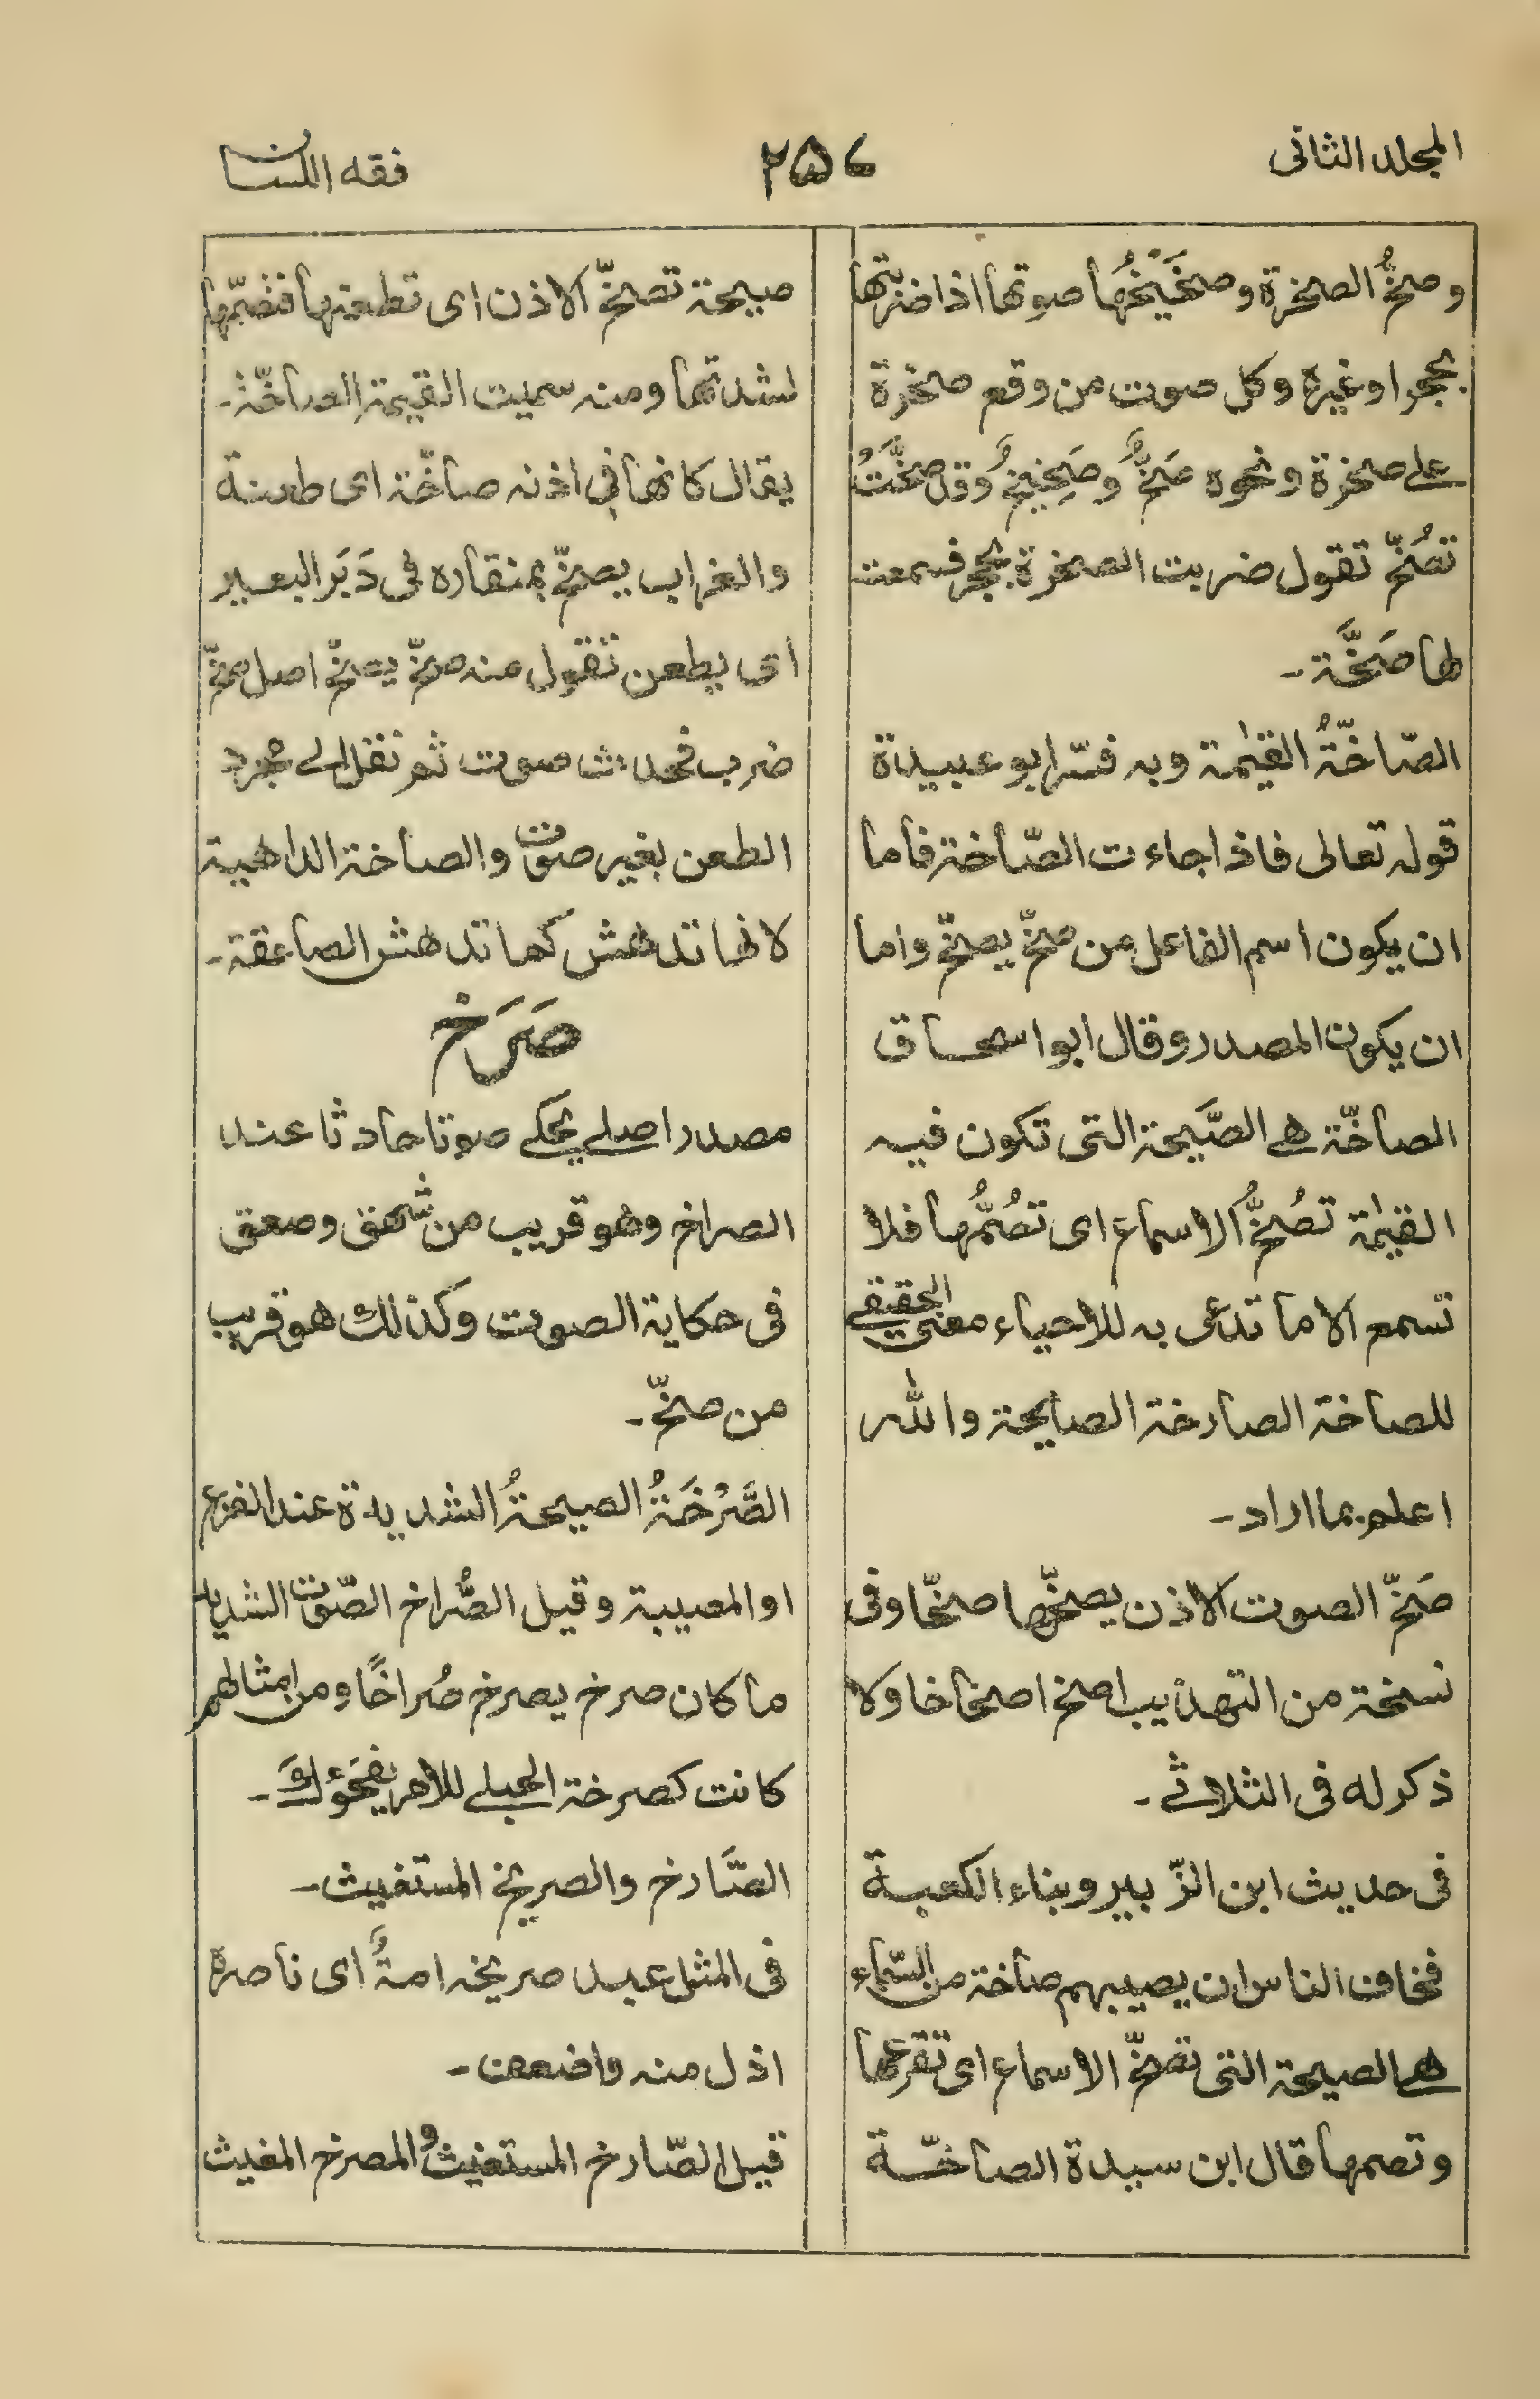 المجلد الثانى
٢٥٦
فقه اللسان
وصخُّ الصخرة وصخَيْخُها صوتها اذا ضربتها
بحجر او غيره وكل صوت من وقع صخرة
على صخرة ونحوه صَخٌّ وصَخِيخٌ وقد صخَّتْ
تصُخّ تقول ضربت الصخرة بحجر فسمعت
لها صَخَّة ـ
الصّاخّةُ القيٰمة وبه فسّر ابو عبيدة
قوله تعالى فاذا جاءت الصّاخة فاما
ان يكون اسم الفاعل من صخّ يصخّ واما
ان يكون المصدر وقال ابو اسحاق
الصاخّة هى الصَّيحة التى تكون فيه
القيٰمة تصُخُّ الاسماع اى تصُمُّها فلا
تسمع الا ما تدعى به للاحياء معنى الحقيقى
للصاخة الصارخة الصايحة والله
اعلم بما اراد ـ
صَخّ الصوت الاذن يصخّها صخّا وفى
نسخة من التهذيب اصخ اصخاخا ولا
ذكر له فى الثلاثى ـ
فى حديث ابن الزّبير وبناء الكعبة
فخاف الناس ان يصيبهم صاخة من السّماء
هى الصيحة التى تصخّ الاسماع اى تقرعها
وتصمها قال ابن سيدة الصاخّة
صيحة تصخّ الاذن اى تطعنها فتصمّها
لشدتها ومنه سميت القيٰمة الصاخّة ـ
يقال كانها فى اذنه صاخّة اى طعنة
والغراب يصخّ بمنقاره فى دَبَر البعير
اى يطعن تقول منه صخّ يصخّ اصل صخّ
ضرب فحدث صوت ثم نقل الى مجرد
الطعن بغير صوت والصاخة الداهية
لانها تدهش كما تدهش الصاعقة ـ
صَرَخ
مصدر اصلى يحكى صوتا حادثا عند
الصراخ وهو قريب من شهق وصعق
فى حكاية الصوت وكذلك هو قريب
من صخّ ـ
الصَّرْخَةُ الصيحةُ الشديدة عند الفزع
او المصيبة وقيل الصُّراخ الصّوت الشديد
ما كان صرخ يصرخ صُراخًا ومن امثالهم
كانت كصرخة الحبلى للامر يفجَؤك ـ
الصَّارخ والصريخ المستغيث ـ
فى المثل عبد صريخه امةٌ اى ناصره
اذل منه واضعف ـ
قيل الصّارخ المستغيث والمصرخ المغيث